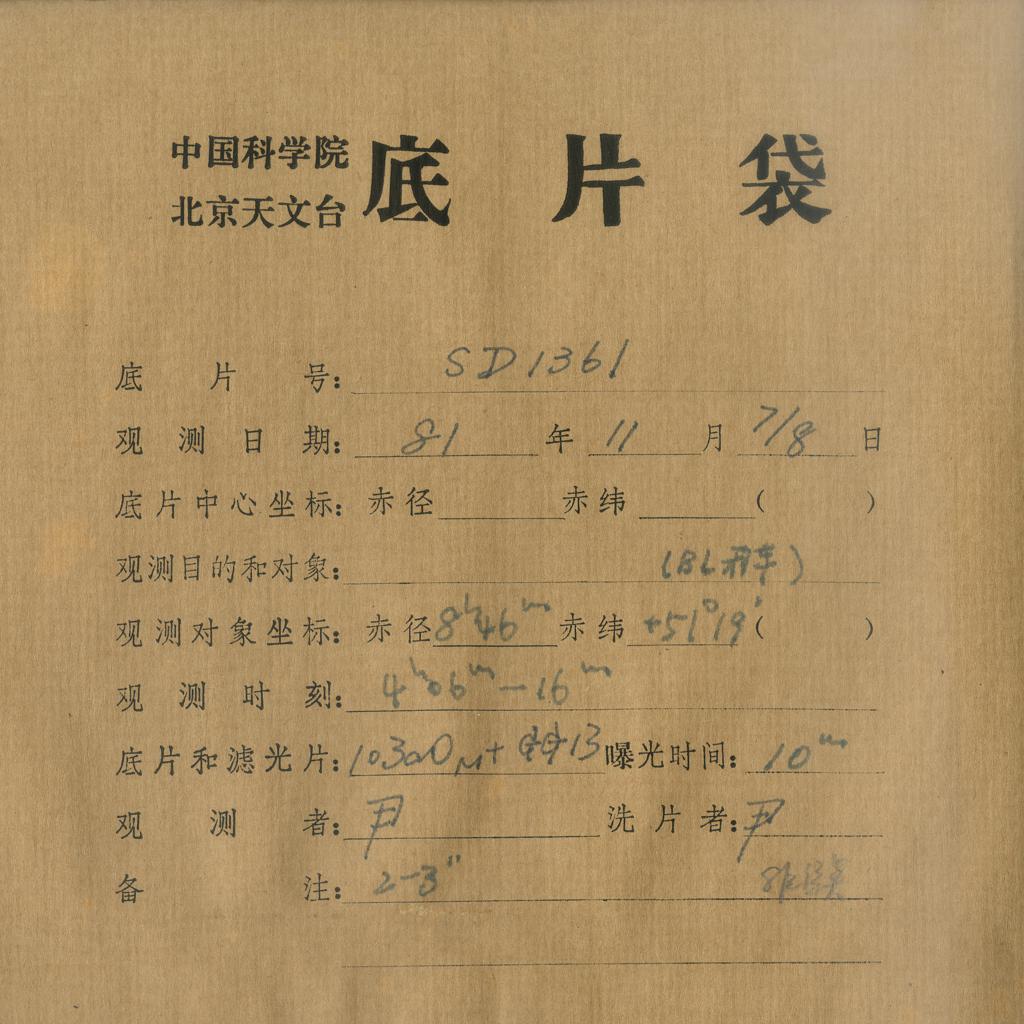 中国科学院
北京天文台
底片袋
底片号: SD1361
观测日期: 81年11月7/8日
底片中心坐标: 赤径 赤纬 ( )
观测目的和对象: (BL
观测对象坐标: 赤径8h46m赤纬+51°19′( )
观测时刻: 4h06m-16m
底片和滤光片: 103aO 13 曝光时间: 10m
观测者: 尹 洗片者: 尹
备注: 2-3"